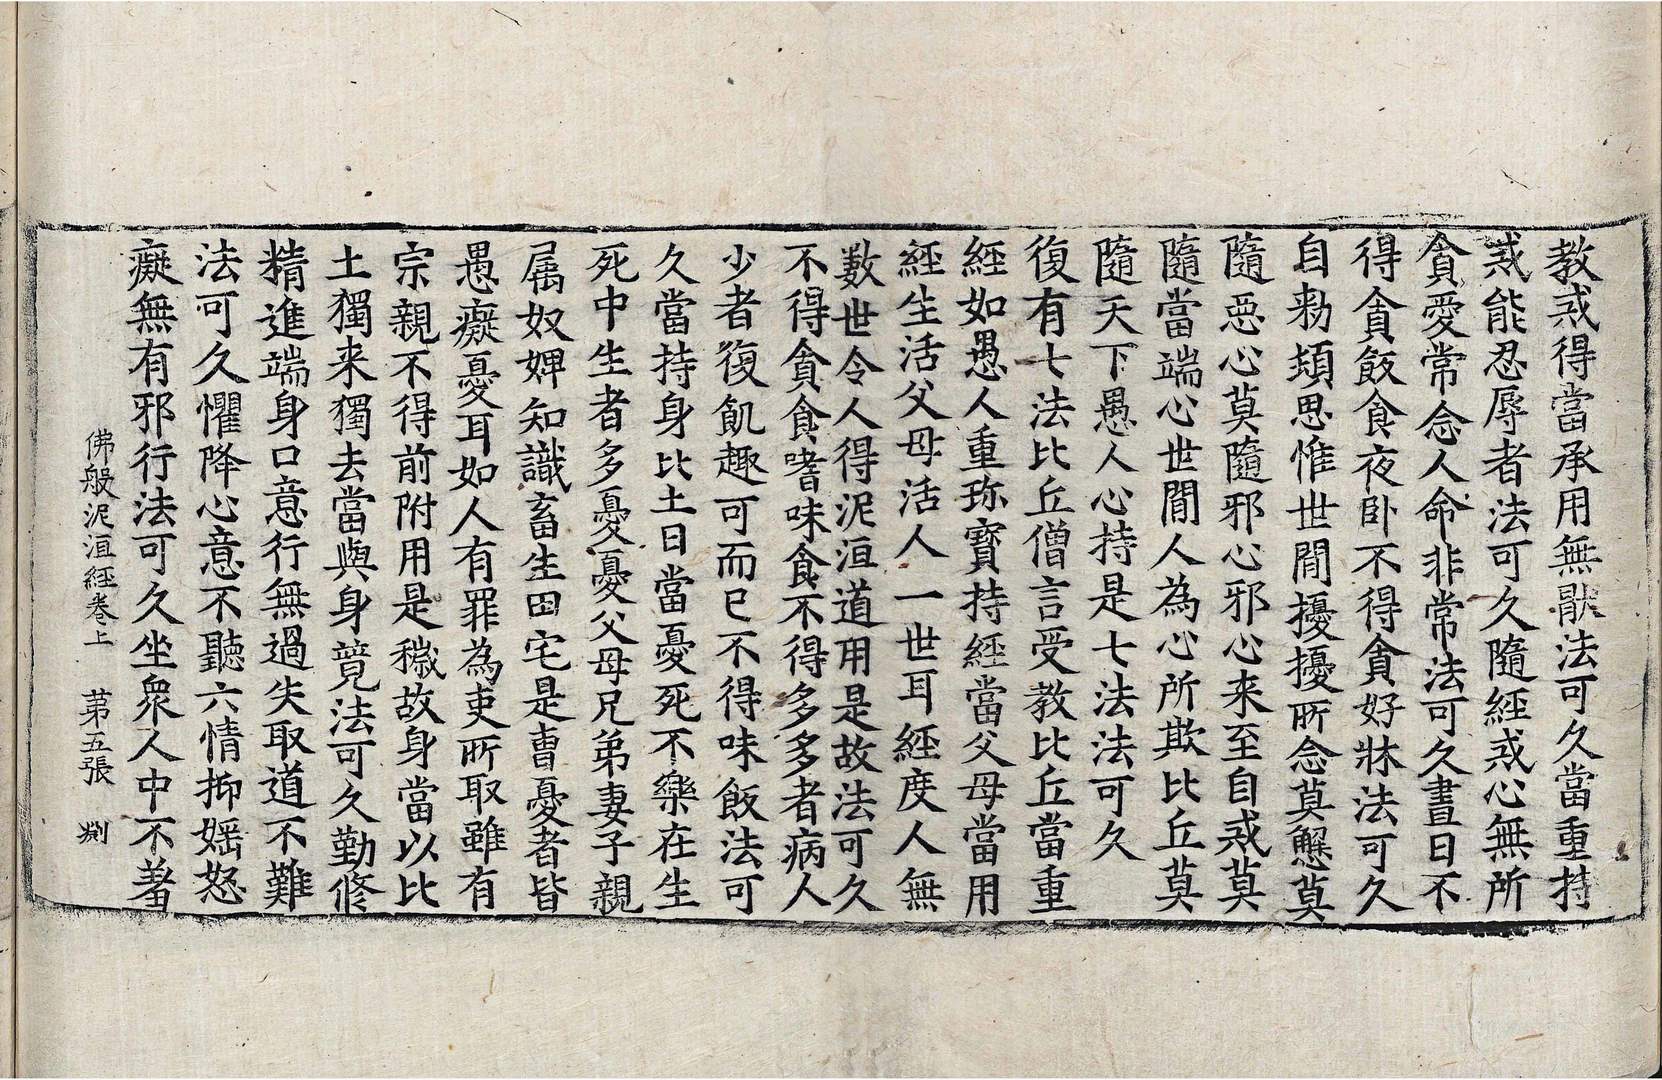 教戒得當承用無猒法可久當重持
戒能忍辱者法可久隨經戒心無所
貪愛常念人命非常法可久晝日不
得貪飯食夜卧不得貪好牀法可久
自勑頭思惟世間擾擾所念莫懈莫
隨惡心莫隨邪心邪心来至自戒莫
隨當端心世間人為心所欺比丘莫
隨天下愚人心持是七法法可久
復有七法比丘僧言受教比丘當重
經如愚人重珎寶持經當父母當用
經生活父母活人一世耳經度人無
數世令人得泥洹道用是故法可久
不得貪食嗜味食不得多多者病人
少者復飢趣可而已不得味飯法可
久當持身比土日當憂死不樂在生
死中生者多憂憂父母兄弟妻子親
属奴婢知識畜生田宅是曺憂者皆
愚癡憂耳如人有罪為吏所取雖有
宗親不得前附用是穢故身當以比
土獨来獨去當與身竟法可久勤修
精進端身口意行無過失取道不難
法可久懼降心意不聽六情抑婬怒
癡無有邪行法可久坐衆人中不羞
佛般泥洹經卷上　第五張